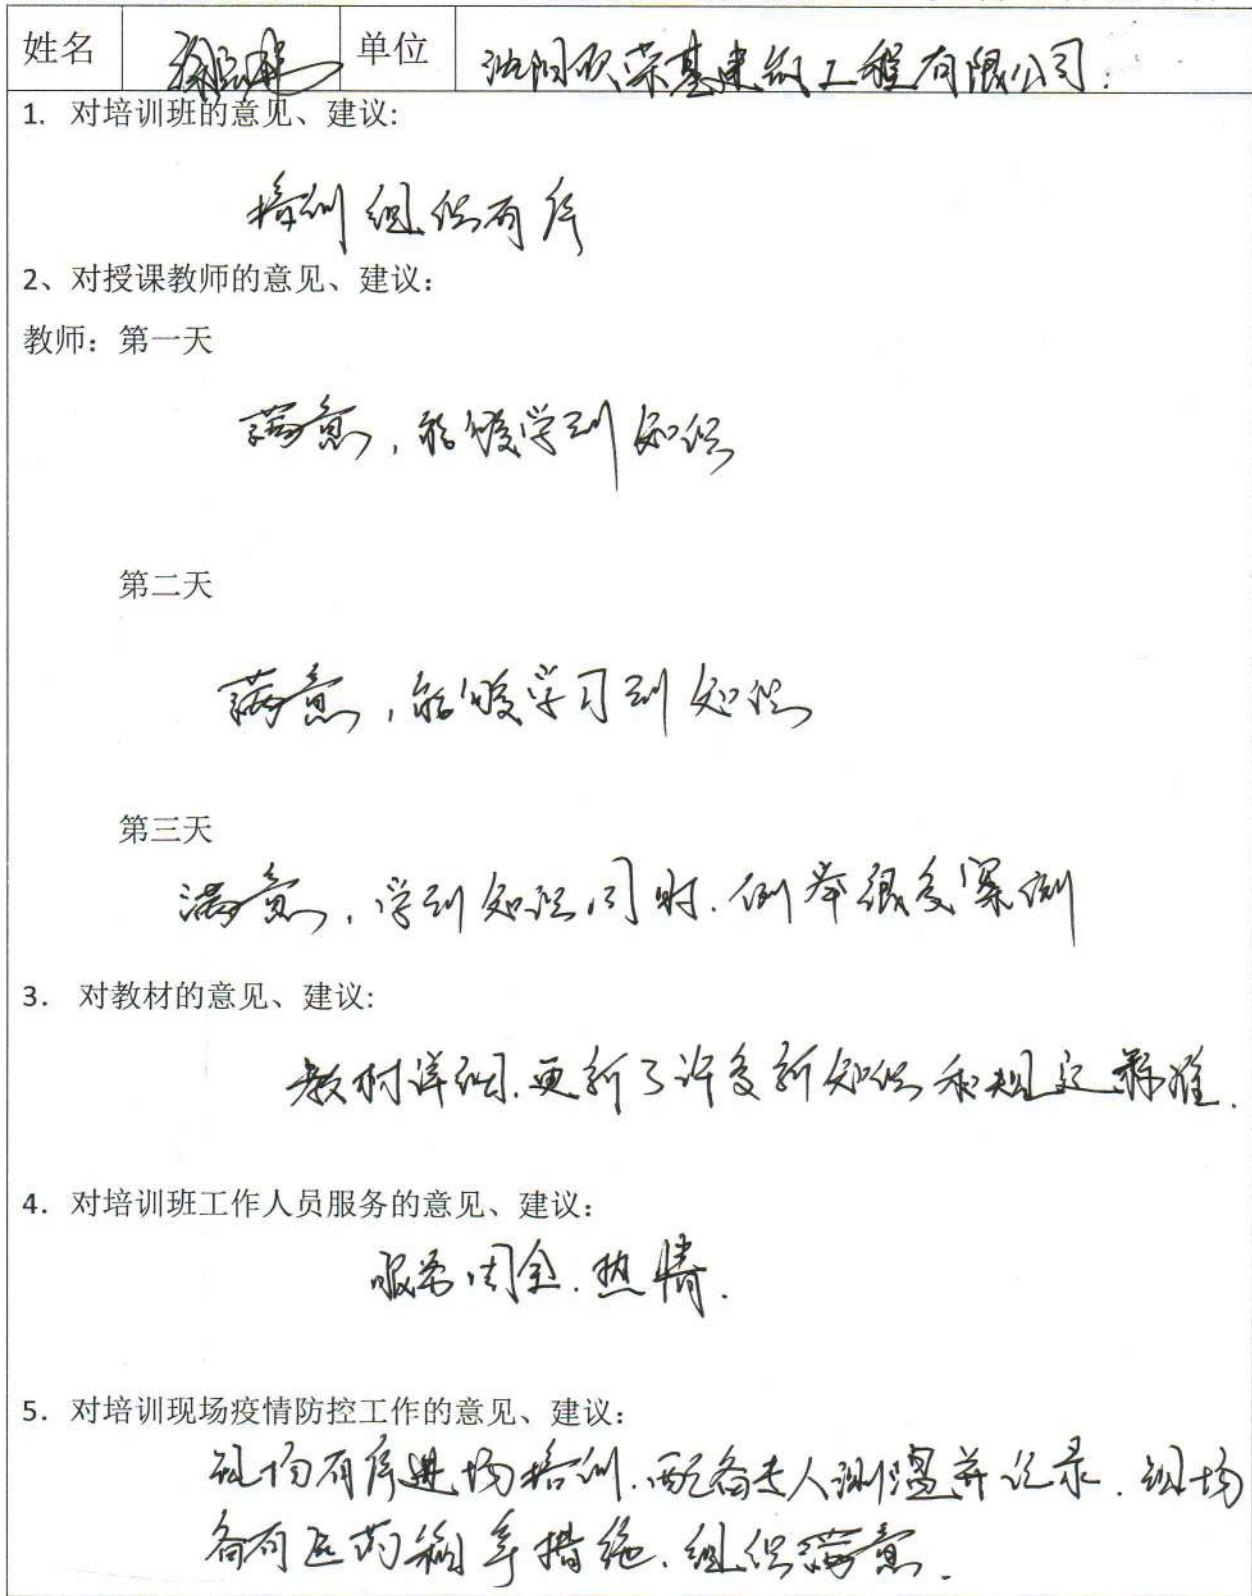 姓名 单位 沈阳欣荣基建筑工程有限公司.
1. 对培训班的意见、建议:
培训组织有序
2、对授课教师的意见、建议：
教师：第一天
满意，能够学到知识
第二天
满意，能够学习到知识
第三天
满意，学到知识同时.例举很多案例
3. 对教材的意见、建议:
教材详细.更新了许多新知识和规定标准.
4. 对培训班工作人员服务的意见、建议：
服务周全.热情.
5. 对培训现场疫情防控工作的意见、建议：
现场有序进场培训.配备专人测温并记录.现场
备有医药箱等措施.组织满意.